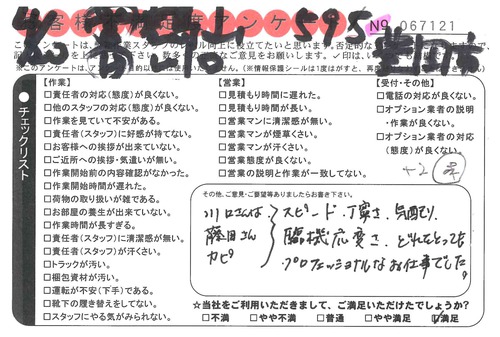 お客様 不満足度アンケート
No 067121
595
このアンケートは、
【作業】
□責任者の対応(態度)が良くない。
□他のスタッフの対応(態度)が良くない。
□作業を見ていて不安がある。
□責任者(スタッフ)に好感が持てない。
□お客様への挨拶が出来ていない。
□ご近所への挨拶・気遣いが無い。
□作業開始前の内容確認がなかった。
□作業開始時間が遅れた。
□荷物の取り扱いが雑である。
□お部屋の養生が出来ていない。
□作業時間が長すぎる。
□責任者(スタッフ)に清潔感が無い。
□責任者(スタッフ)が汗くさい。
□トラックが汚い。
□梱包資材が汚い。
□運転が不安(下手)である。
□靴下の履き替えをしてない。
□スタッフにやる気が感じられない。
【営業】
□見積もり時間に遅れた。
□見積もり時間が長い。
□営業マンに清潔感が無い。
□営業マンが煙草くさい。
□営業マンが汗くさい。
□営業態度が良くない。
□営業の説明と作業が一致してない。
【受付・その他】
□電話の対応が良くない。
□オプション業者の説明
・作業が良くない。
□オプション業者の対応
(態度)が良くない。
+2
●チェックリスト
その他、ご意見・ご要望等ありましたらお書き下さい。
川口さんは スピード、丁寧さ、気配り、
藤田さん 臨機応変さ、どれをとっても
プロフェッショナルなお仕事でした。
☆当社をご利用いただきまして、ご満足いただけたでしょうか?
□不満 □やや不満 □普通 □やや満足 ☑満足